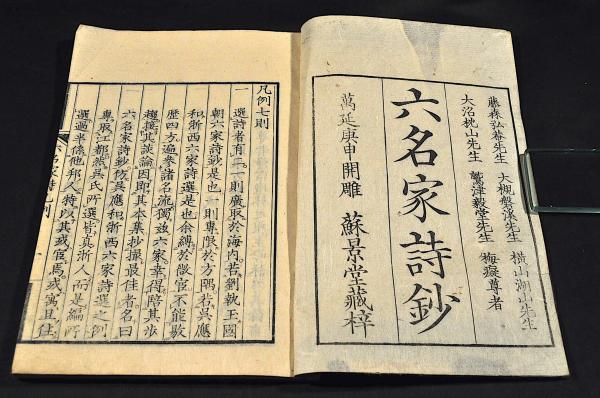 藤森弘菴先生 大槻磐溪先生 横山湖山先生
大沼枕山先生 鷲津毅堂先生 梅癡尊者
六名家詩鈔
萬延庚申開雕 蘇景堂藏梓
凡例七則
一 選詩者有二、一則廣取於海内、若劉執玉國
朝六家詩鈔是也、一則專限於方隅、若吳應
和浙西六家詩選是也、余縛於微官、不能
歷四方、遍參諸名流、獨玆六家、幸得陪其步
趨、接其談論、因即其本集、抄撮最佳者、名曰
六名家詩鈔、仿吳應和浙西六家詩選之例
專取江都、然吳氏所選、皆眞浙人、而是編所
選、過半係他邦人、特以其或官焉、或寓且住
六名家詩凡例